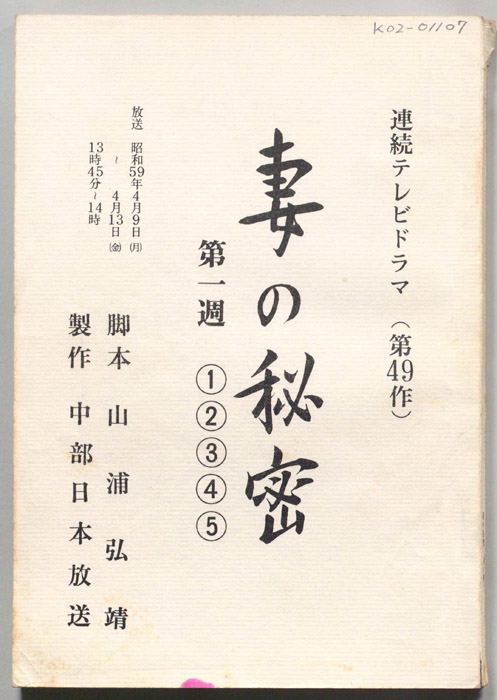 K02-01107
連続テレビドラマ（第49作）
妻の秘密
第一週 ①②③④⑤
放送 昭和59年4月9日(月)
～4月13日(金)
13時45分～14時
脚本 山浦弘靖
製作 中部日本放送